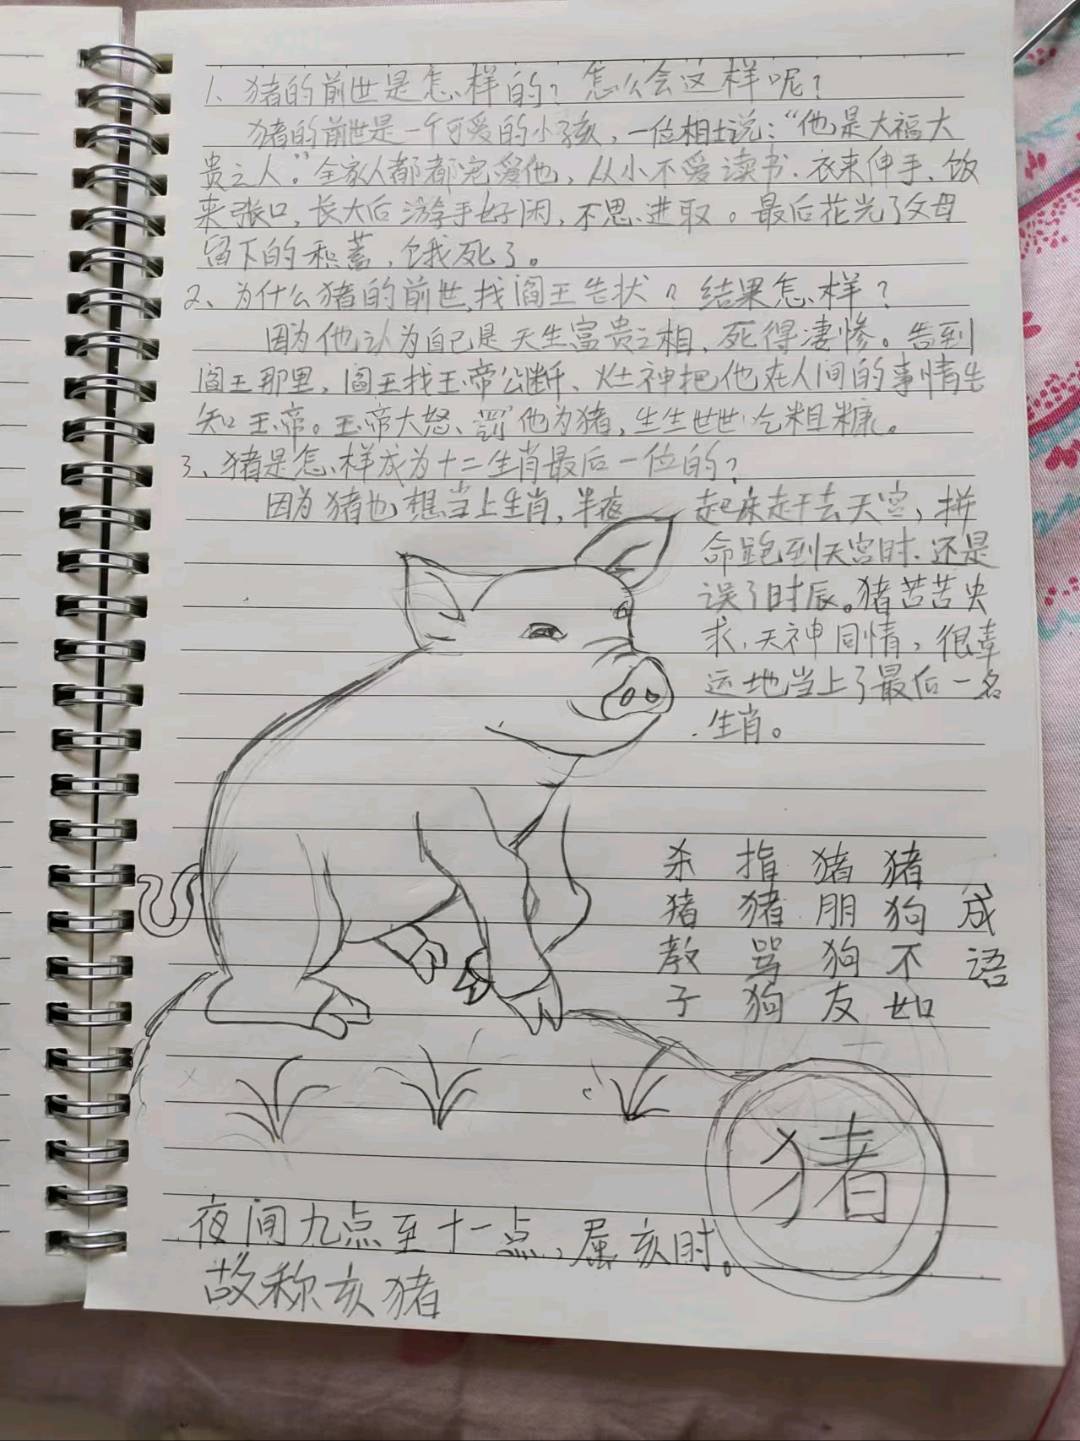 1、猪的前世是怎样的？怎么会这样呢？
猪的前世是一个可爱的小孩，一位相士说：“他是大福大
贵之人。”全家人都都宠爱他，从小不爱读书、衣来伸手、饭
来张口，长大后游手好闲，不思进取。最后花光了父母
留下的积蓄，饿死了。
2、为什么猪的前世找阎王告状？结果怎样？
因为他认为自己是天生富贵之相，死得凄惨。告到
阎王那里，阎王找玉帝公断、灶神把他在人间的事情告
知玉帝。玉帝大怒、罚他为猪，生生世世吃粗糠。
3、猪是怎样成为十二生肖最后一位的？
因为猪也想当上生肖，半夜起床赶去天宫，拼
命跑到天宫时，还是
误了时辰。猪苦苦央
求，天神同情，很幸
运地当上了最后一名
生肖。
成语
猪狗不如
猪朋狗友
指猪骂狗
杀猪教子
猪
夜间九点至十一点，属亥时。
故称亥猪